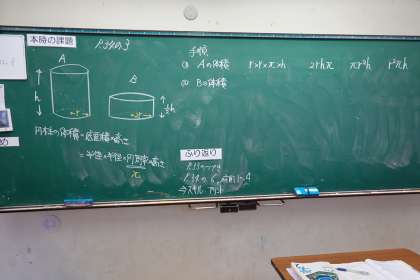 本時の課題
P34の3
A
B
h
r
2r
½h
円柱の体積＝底面積×高さ
＝半径×半径×円周率×高さ
π
手順
① Aの体積 r×r×π×h 2rhπ πr²h r²πh
② Bの体積
ふり返り
⇒スキル プリント